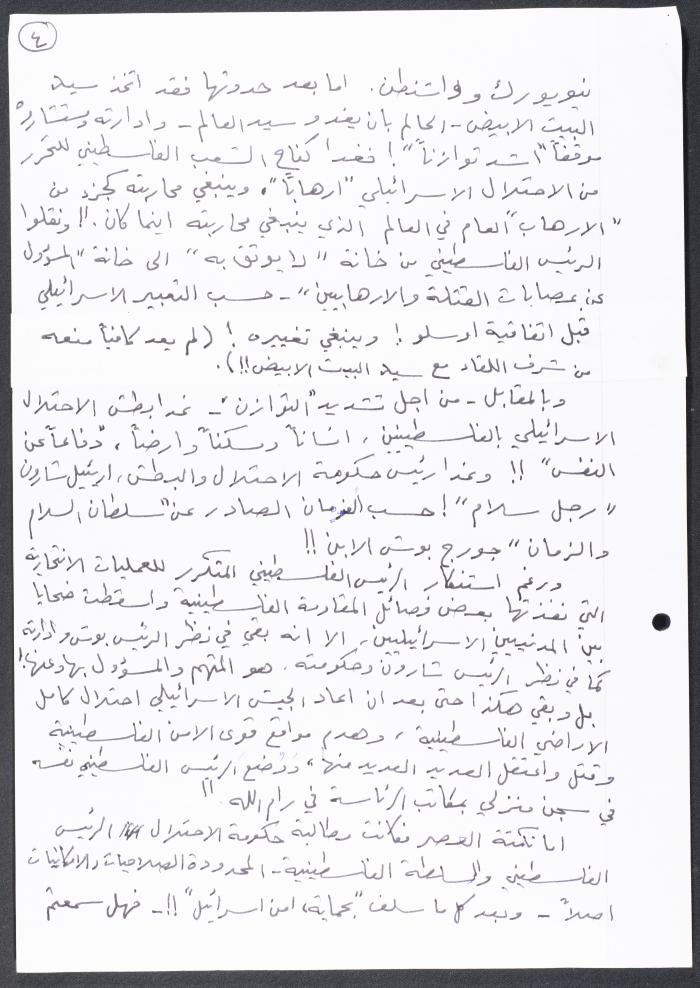 ٤
نيويورك وواشنطن. اما بعد حدوثها فقد اتخذ سيد
البيت الابيض - الحالم بان يغدو سيد العالم - وادارته ومستشاروه
موقفاً "اشد توازناً"! فغدا كفاح الشعب الفلسطيني للتحرر
من الاحتلال الاسرائيلي "ارهاباً"، وينبغي محاربته كجزء من
"الارهاب" العام في العالم الذي ينبغي محاربته اينما كان.!! ونقلوا
الرئيس الفلسطيني من خانة "لا يوثق به" الى خانة "المسؤول
عن عصابات القتلة والارهابيين" - حسب التعبير الاسرائيلي
قبل اتفاقية اوسلو! وينبغي تغييره! (لم يعد كافياً منعه
من شرف اللقاء مع سيد البيت الابيض!!).
وبالمقابل - من اجل تشديد "التوازن" - غدا بطش الاحتلال
الاسرائيلي بالفلسطينيين، انساناً ومسكناً وارضاً، "دفاعاً عن
النفس"!! وغدا رئيس حكومة الاحتلال والبطش، ارئيل شارون
"رجل سلام"! حسب الفرمان الصادر عن "سلطان السلام
والزمان" جورج بوش الابن!!
ورغم استنكار الرئيس الفلسطيني المتكرر للعمليات الانتحارية
التي نفذتها بعض فصائل المقاومة الفلسطينية واسقطت ضحايا
بين المدنيين الاسرائيليين، الا انه بقي في نظر الرئيس بوش وادارته
كما في نظر الرئيس شارون وحكومته، هو المتهم والمسؤول بها وعنها!
بل وبقي هكذا حتى بعد ان اعاد الجيش الاسرائيلي احتلال كامل
الاراضي الفلسطينية، وهدم مواقع قوى الامن الفلسطينية
وقتل واعتقل العديد العديد منها، ووضع الرئيس الفلسطيني نفسه
في سجن منزلي بمكاتب الرئاسة في رام الله!!
اما نكتة العصر فكانت مطالبة حكومة الاحتلال الرئيس
الفلسطيني والسلطة الفلسطينية - المحدودة الصلاحيات والامكانيات
اصلاً - وبعد كل ما سلف "بحماية امن اسرائيل"!! - فهل سمعتم